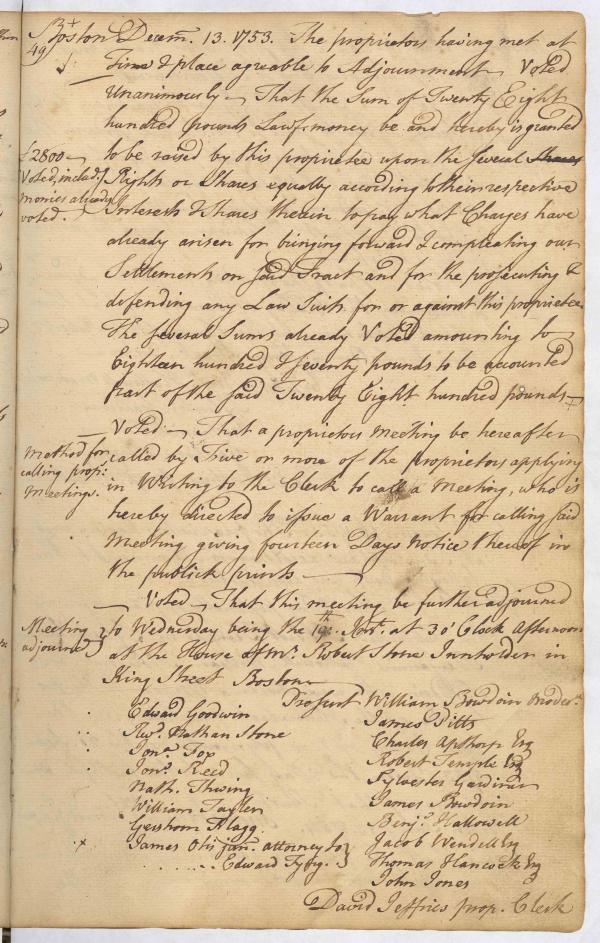 Boston Decem. 13. 1753. The proprietors having met at
49)
Time & place agreable to Adjournment Voted
Unanimously That the Sum of Twenty Eight
hundred pounds Lawf. money be and hereby is granted
£2800
Voted, includ.
monies already
voted.
to be raised by this proprietee upon the several Shares
Rights or Shares equally according to their respective
Interests & Shares therein to pay what Charges have
already arisen for bringing forward & compleating our
Settlements on said Tract and for the prosecuting &
defending any Law Suits for or against this proprietee
The several Sums already Voted amounting to
Eighteen hundred & seventy pounds to be accounted
part of the said Twenty Eight hundred pounds
Voted That a proprietors meeting be hereafter
Method for
calling prop:
Meetings.
called by Five or more of the proprietors applying
in Writing to the Clerk to call a Meeting, who is
hereby directed to issue a Warrant for calling said
Meeting giving fourteen Days Notice thereof in
the publick prints
Voted That this meeting be further adjourned
Meeting
adjourned
to Wednesday being the 19th. Inst. at 3 o'Clock Afternoon
at the House of Mr. Robert Stone Innholder in
King Street Boston
Present William Bowdoin Moder.
Edward Goodwin
Revd. Nathan Stone
Jona. Fox
Jona. Reed
Nath. Thwing
William Tayler
Gershom Flagg
James Otis jun. attorney to
Edward Tyng.
James Pitts
Charles Apthorp Esq
Robert Temple Esq
Sylvester Gardiner
James Bowdoin
Benj. Hallowell
Jacob Wendell Esq
Thomas Hancock Esq
John Jones
David Jeffries prop. Clerk